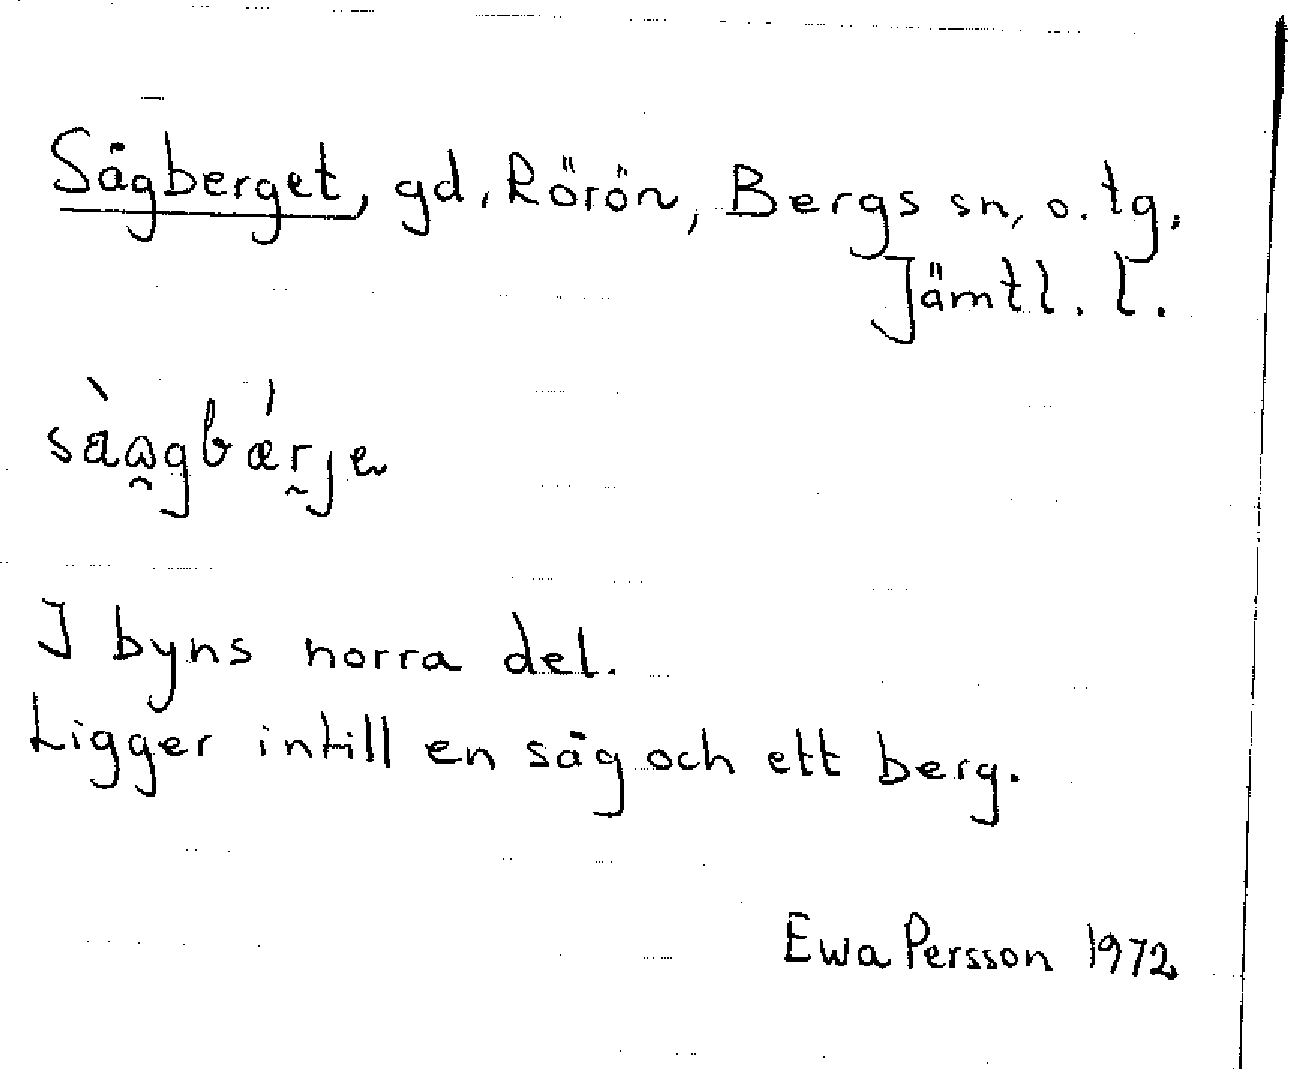 Sågberget, gd, Rörön, Bergs sn, o. tg.
Jämtl. l.
I byns norra del.
Ligger intill en såg och ett berg.
Ewa Persson 1972